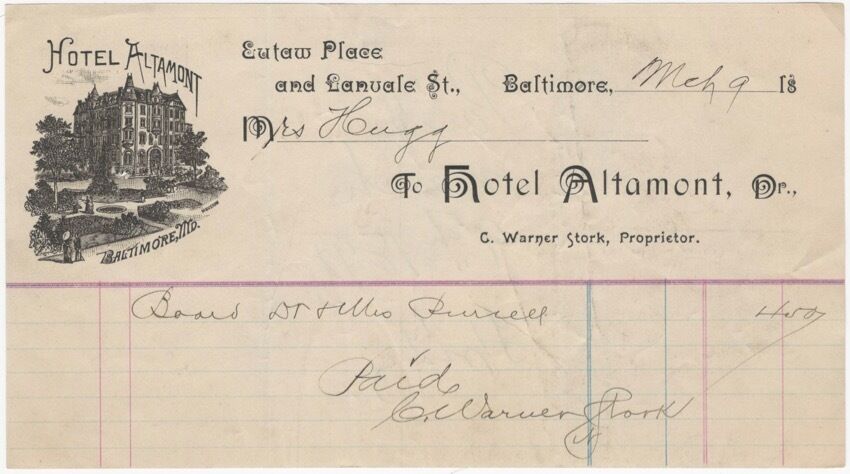 HOTEL ALTAMONT
BALTIMORE, MD.
Eutaw Place
and Lanvale St., Baltimore, Mch 9 18
Mrs Hugg
To Hotel Altamont, Dr.,
C. Warner Stork, Proprietor.
Board Dr & Mrs Purcell 4 00
Paid
C. Warner Stork